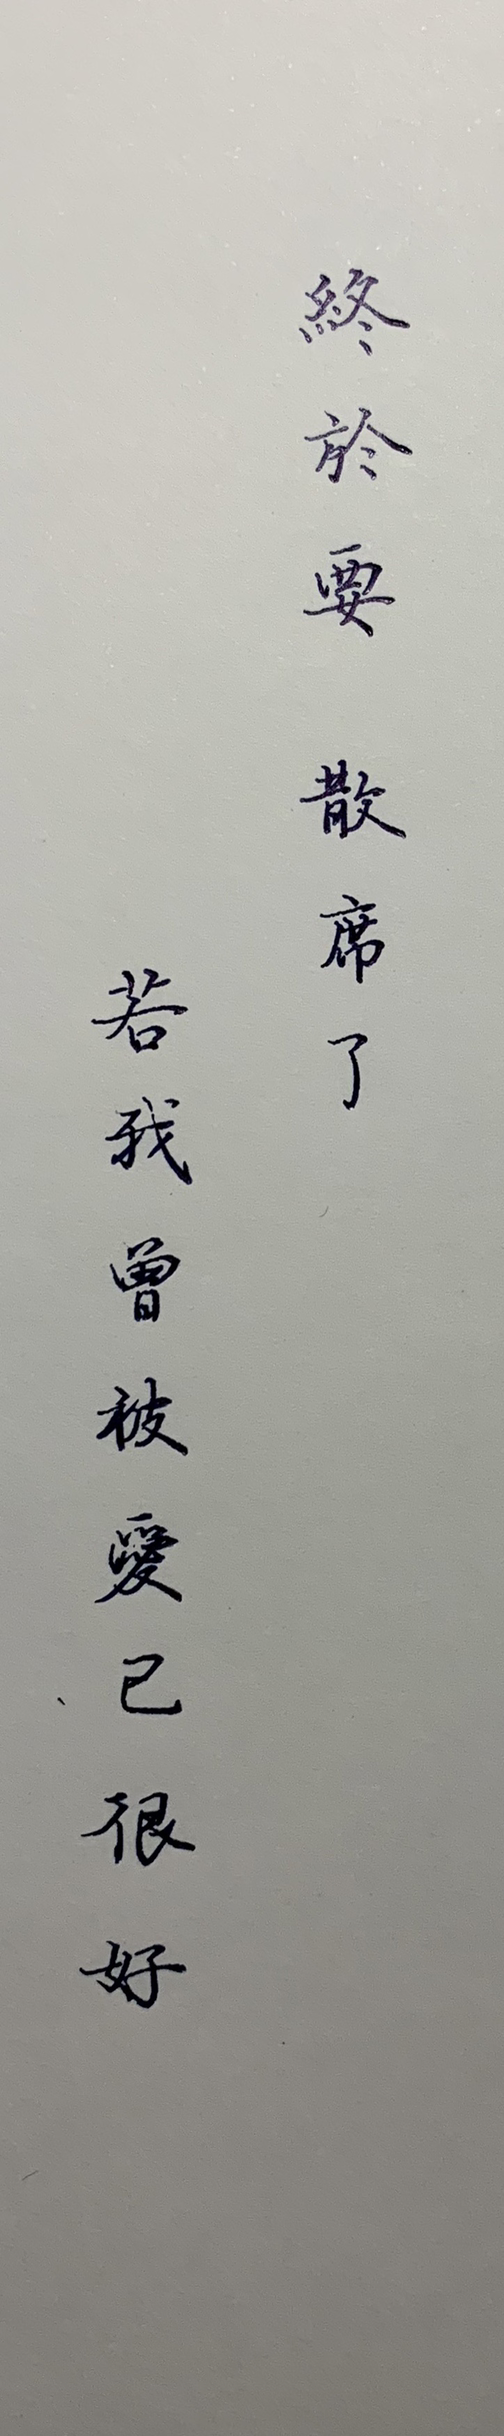 終於要 散席了
若我曾被愛已很好